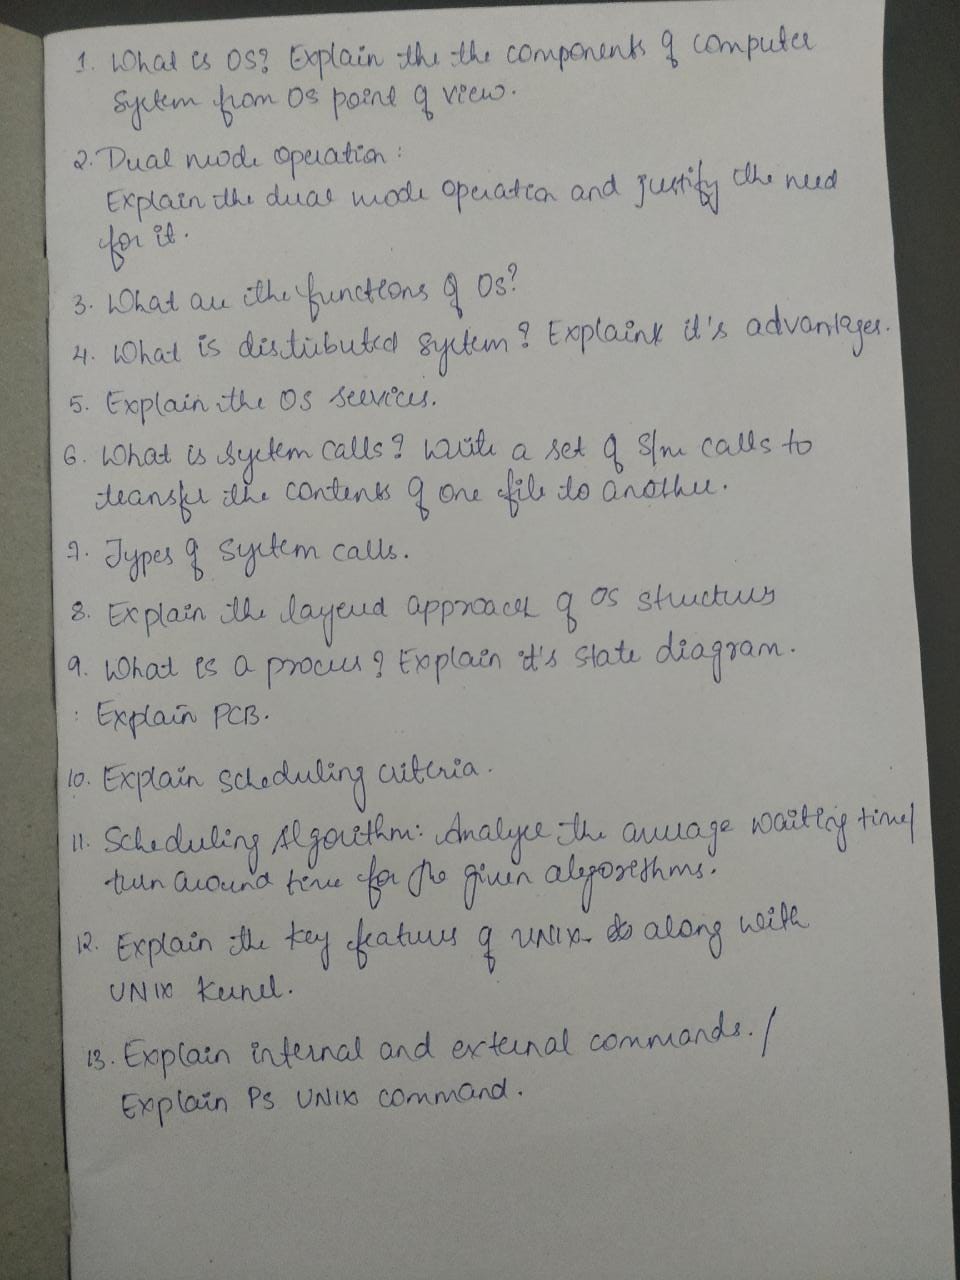 1. What is OS? Explain the the components of computer
System from OS point of view.
2. Dual mode operation:
Explain the dual mode operation and justify the need
for it.
3. What are the functions of OS?
4. What is distributed system? Explain it's advantages.
5. Explain the OS services.
6. What is system calls? Write a set of S/m calls to
transfer the contents of one file to another.
7. Types of system calls.
8. Explain the layered approach of OS structures
9. What is a process? Explain it's state diagram.
: Explain PCB.
10. Explain scheduling criteria.
11. Scheduling Algorithm: Analyse the average waiting time/
turn around time for the given algorithms.
12. Explain the key features of UNIX along with
UNIX Kernel.
13. Explain internal and external commands. /
Explain Ps UNIX command.